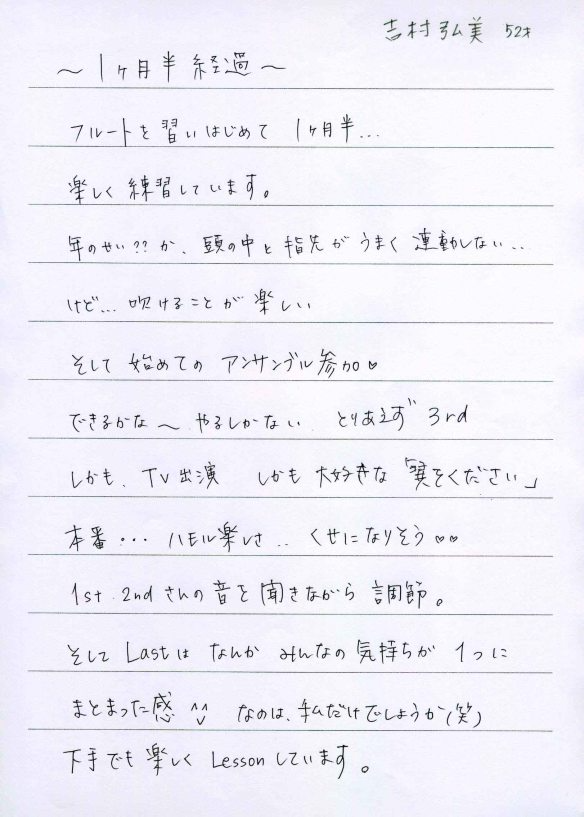 吉村弘美 52才
～1ヶ月半経過～
フルートを習いはじめて 1ヶ月半...
楽しく練習しています。
年のせい??か、頭の中と指先がうまく連動しない...
けど... 吹けることが楽しい
そして始めてのアンサンブル参加♥
できるかな～やるしかない とりあえず 3rd
しかも、TV出演 しかも大好きな「翼をください」
本番・・・ハモル楽しさ... くせになりそう♥♥
1st.2ndさんの音を聞きながら調節。
そしてLastはなんかみんなの気持ちが1つに
まとまった感^^ なのは、私だけでしょうか(笑)
下手でも楽しくLessonしています。